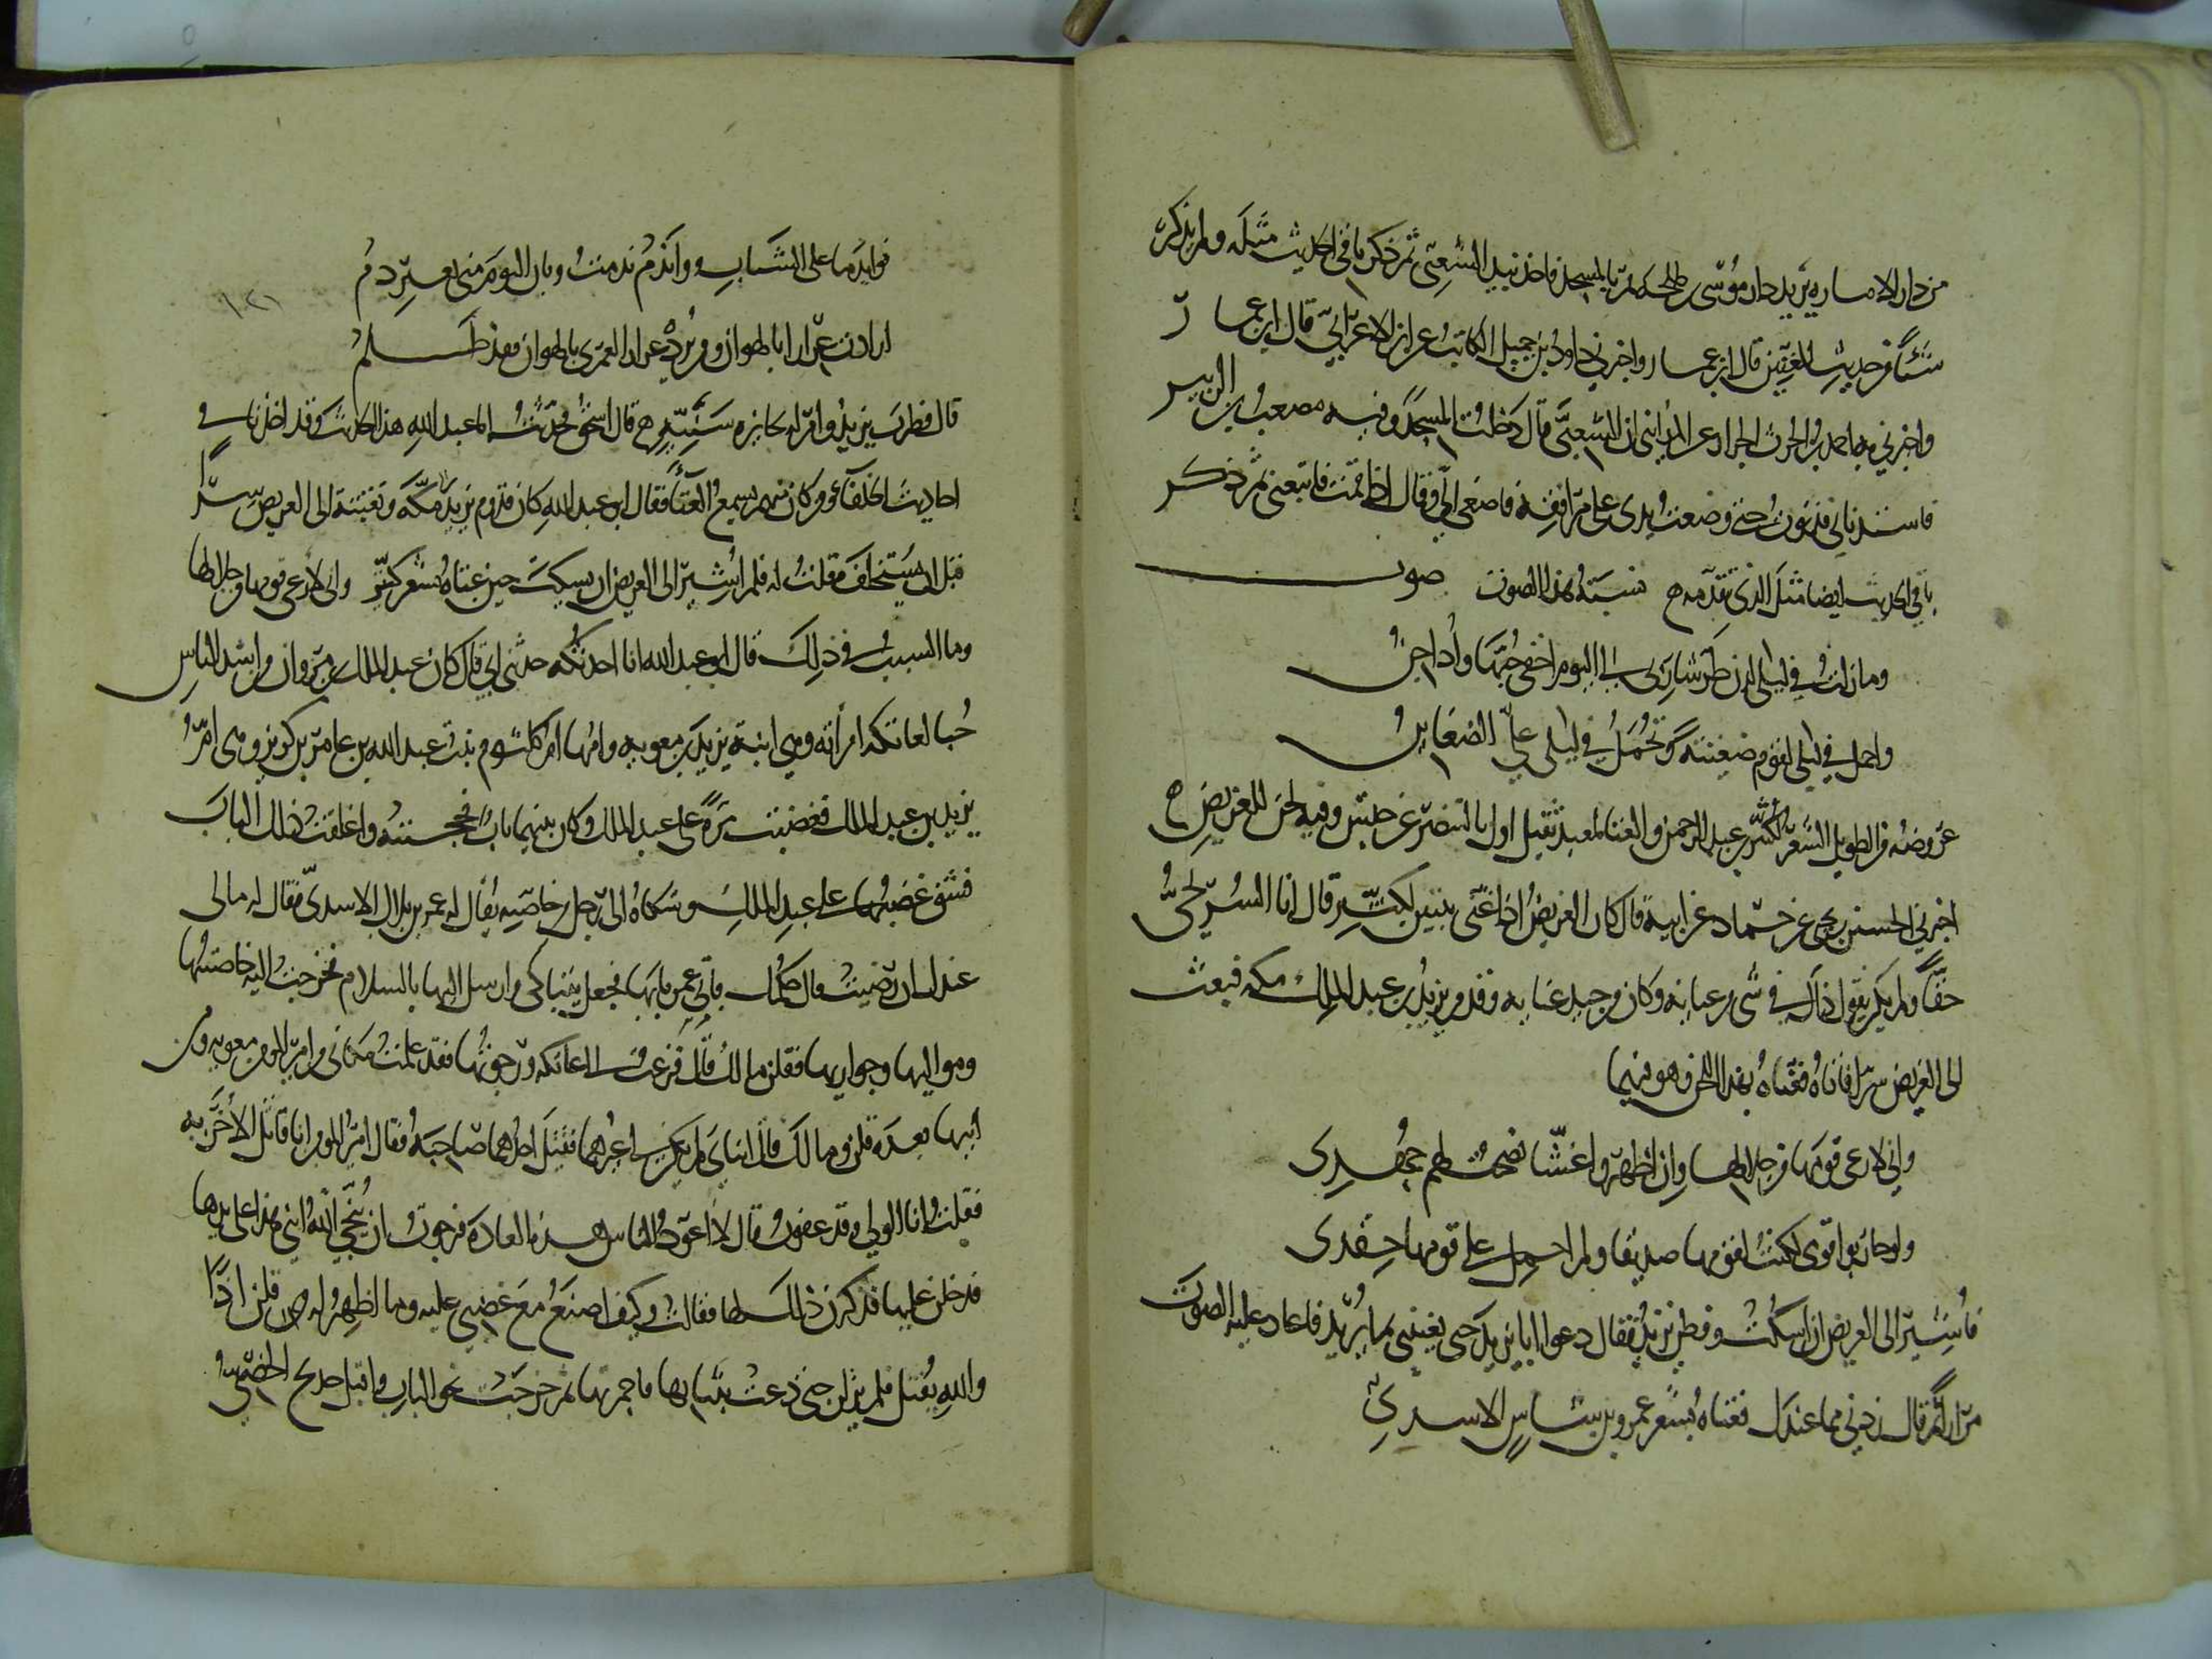 من دار الاماره يريد دار موسى بن طلحه فمر بالمسجد فاخذ بيد الشعبى ثم ذكر باقى الحديث مثله ولم يذكر
شيئا من حديث المغنين قال ابن عمار واخبرنى داود بن جميل الكاتب عن ابن الاعرابى قال ابن عمار
واخبرنى به احمد بن الحرث الخراز عن المداينى ان الشعبى قال دخلت المسجد وفيه مصعب بن الزبير
فاستدنانى فدنوت حتى وضعت يدى على مرافقه فاصغى الى وقال اذا قمت فاتبعنى ثم ذكر
باقى الحديث ايضا مثل الذى تقدمه نسبة هذا الصوت صوت
وما زلت فى ليلى لدن طر شاربى الى اليوم اخفى حبها واداجن
واحمل فى ليلى لقوم ضغينة وتحمل فى ليلى على الضغاين
عروضه من الطويل الشعر لكثير بن عبد الرحمن والغنا لمعبد ثقيل اول بالبنصر عن حبش وفيه لحن للغريض
اخبرنى الحسين بن يحيى عن حماد عن ابيه قال كان الغريض اذا غنى بيتين لكثير قال انا السريجى
حقا ولم يكن يقول ذلك فى شى من غنايه وكان من جيد غنايه وقدم يزيد بن عبد الملك مكه فبعث
الى الغريض سرا فاتاه فغناه بهذا اللحن وهو فيهما
وانى لارعى قومها من جلالها وان اظهروا غشا نصحت لهم جهدى
ولو حاربوا قومى لكنت لقومها صديقا ولم احمل على قومها حقدى
فاشير الى الغريض ان اسكت وفطن يزيد فقال دعوا ابا يزيد حتى يغنينى بما يريد فاعاد عليه الصوت
مرارا ثم قال زدنى مما عندك فغناه بشعر عمرو بن شاس الاسدى
فوا ندما على الشباب ووا ندم ندمت وبان اليوم منى بغير ذم
ارادت عرارا بالهوان ومن يرد عرارا لعمرى بالهوان فقد ظلم
قال فطرب يزيد وامر له بجايزه سنيه قال اسحق فحدثت ابا عبد الله هذا الحديث وقد اخذنا فى
احاديث الخلفا ومن كان منهم يسمع الغنا فقال ابو عبد الله كان قدوم يزيد مكة وتبعثته الى الغريض سرا
قبل ان يستخلف فقلت له فلم اشير الى الغريض ان يسكت حين غناه بشعر كثير وانى لارعى قومها من جلالها
وما السبب فى ذلك قال ابو عبد الله انا احدثكه حدثنى ابى قال كان عبد الملك بن مروان من اشد الناس
حبا لعاتكه امرأته وهى ابنة يزيد بن معويه وامها ام كلثوم بنت عبد الله بن عامر بن كريز وهى ام
يزيد بن عبد الملك فغضبت مرة على عبد الملك وكان بينهما باب فحجبته واغلقت ذلك الباب
فشق غضبها على عبد الملك وشكاه الى رجل من خاصته يقال له عمر بن بلال الاسدى فقال له ما لى
عندك ان رضيت قال حكمك فاتى عمر بابها فجعل يتباكى وارسل اليها بالسلام فخرجت اليه خاضنتها
ومواليها وجواريها فقلن ما لك قال فزعت الى عاتكه ورجوتها فقد علمت مكانى من امير المومنين معويه ومن
ابيها بعده قلن وما لك قال ابناى لم يكن لى غيرهما فقتل احدهما صاحبه فقال امير المومنين انا قاتل الاخر به
فقلت انا الولى وقد عفوت قال لا اعود الناس هذه العادة فرجوت ان ينجى الله ابنى هذا على يدها
فدخلن عليها فذكرن ذلك لها فقالت وكيف اصنع مع غضبى عليه وما اظهرت له قلن اذا
والله يقتل فلم يزلن حتى دعت بثيابها فاجمرتها ثم خرجت نحو الباب واقبل حديج الخصى